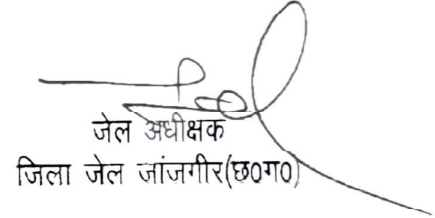 जेल अधीक्षक
जिला जेल जांजगीर(छ0ग0)